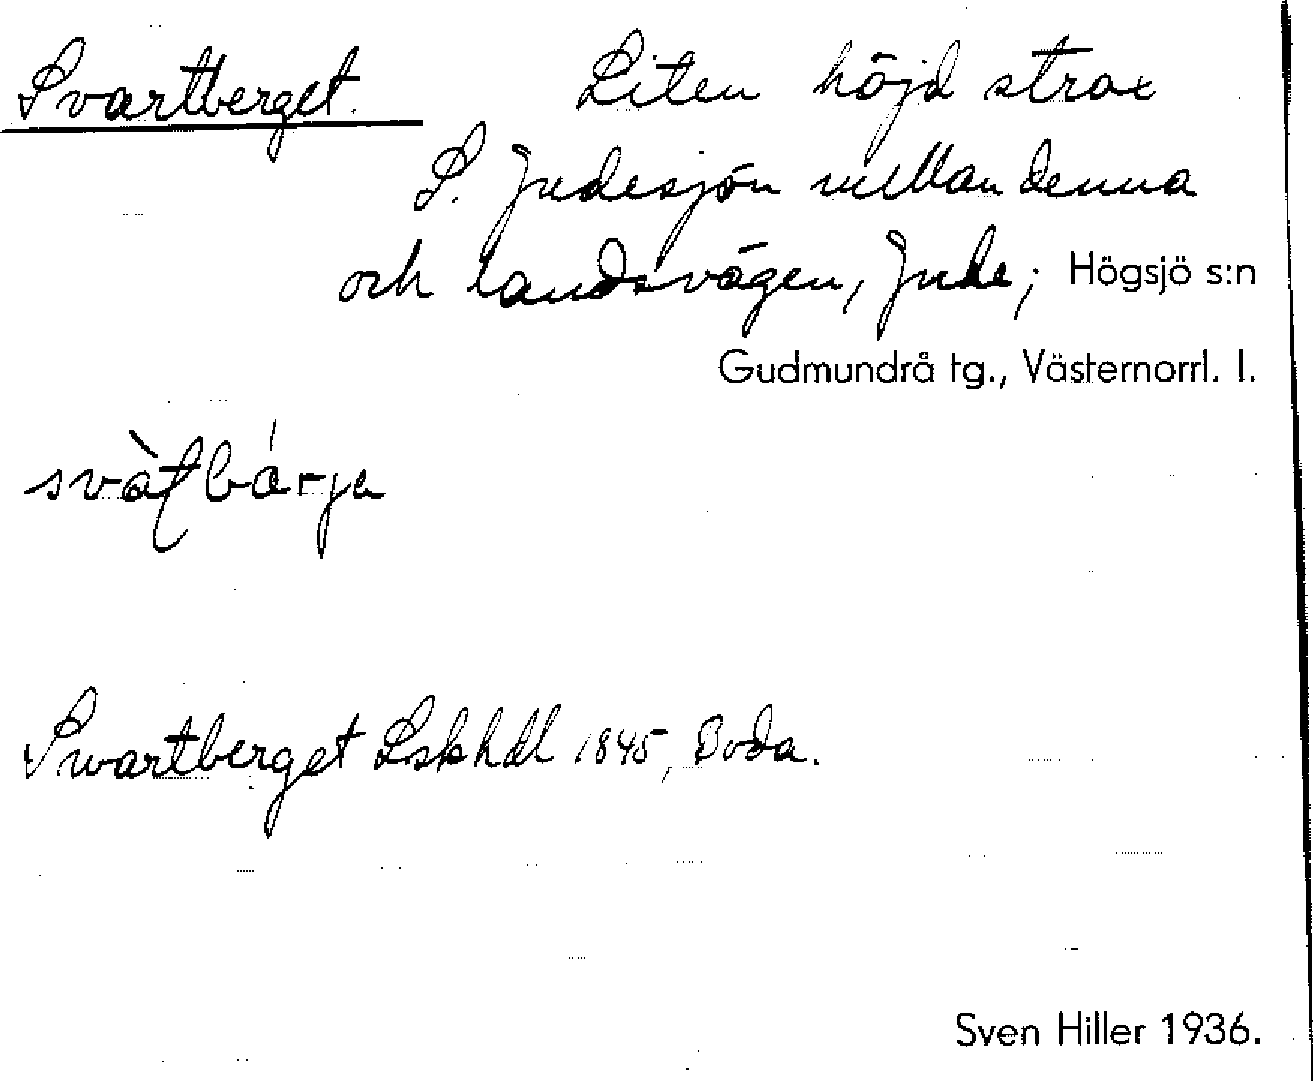 Svartberget. Liten höjd strax
S. Judesjön mellan denna
och landsvägen, Jude; Högsjö s:n
Gudmundrå tg., Västernorrl. l.
Swartberget Lskhdl 1845, Boda.
Sven Hiller 1936.